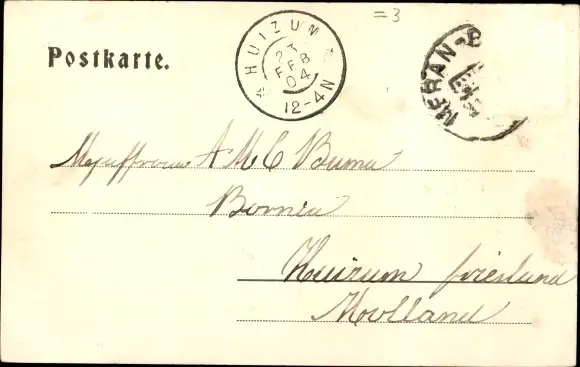 =3
Postkarte.
HUIZUM
23
FEB
04
12-4N
MERAN-B
Mejuffrouw A M C Buma
Bornia
Huizum friesland
Holland